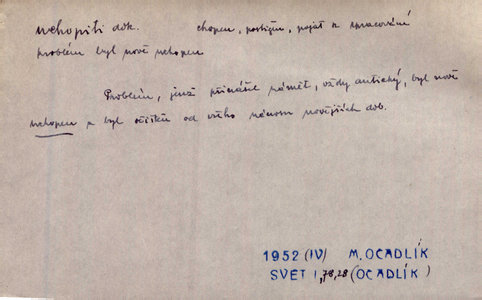 uchopiti dok. chopen, postižen, pojat k zpracování
problém byl nově uchopen
Problém, jenž přinášel námět, vždy antický, byl nově
uchopen a byl očištěn od všeho nánosu novějších dob.
1952 (IV) M. OČADLÍK
SVĚT I, 78, 28 (OČADLÍK)